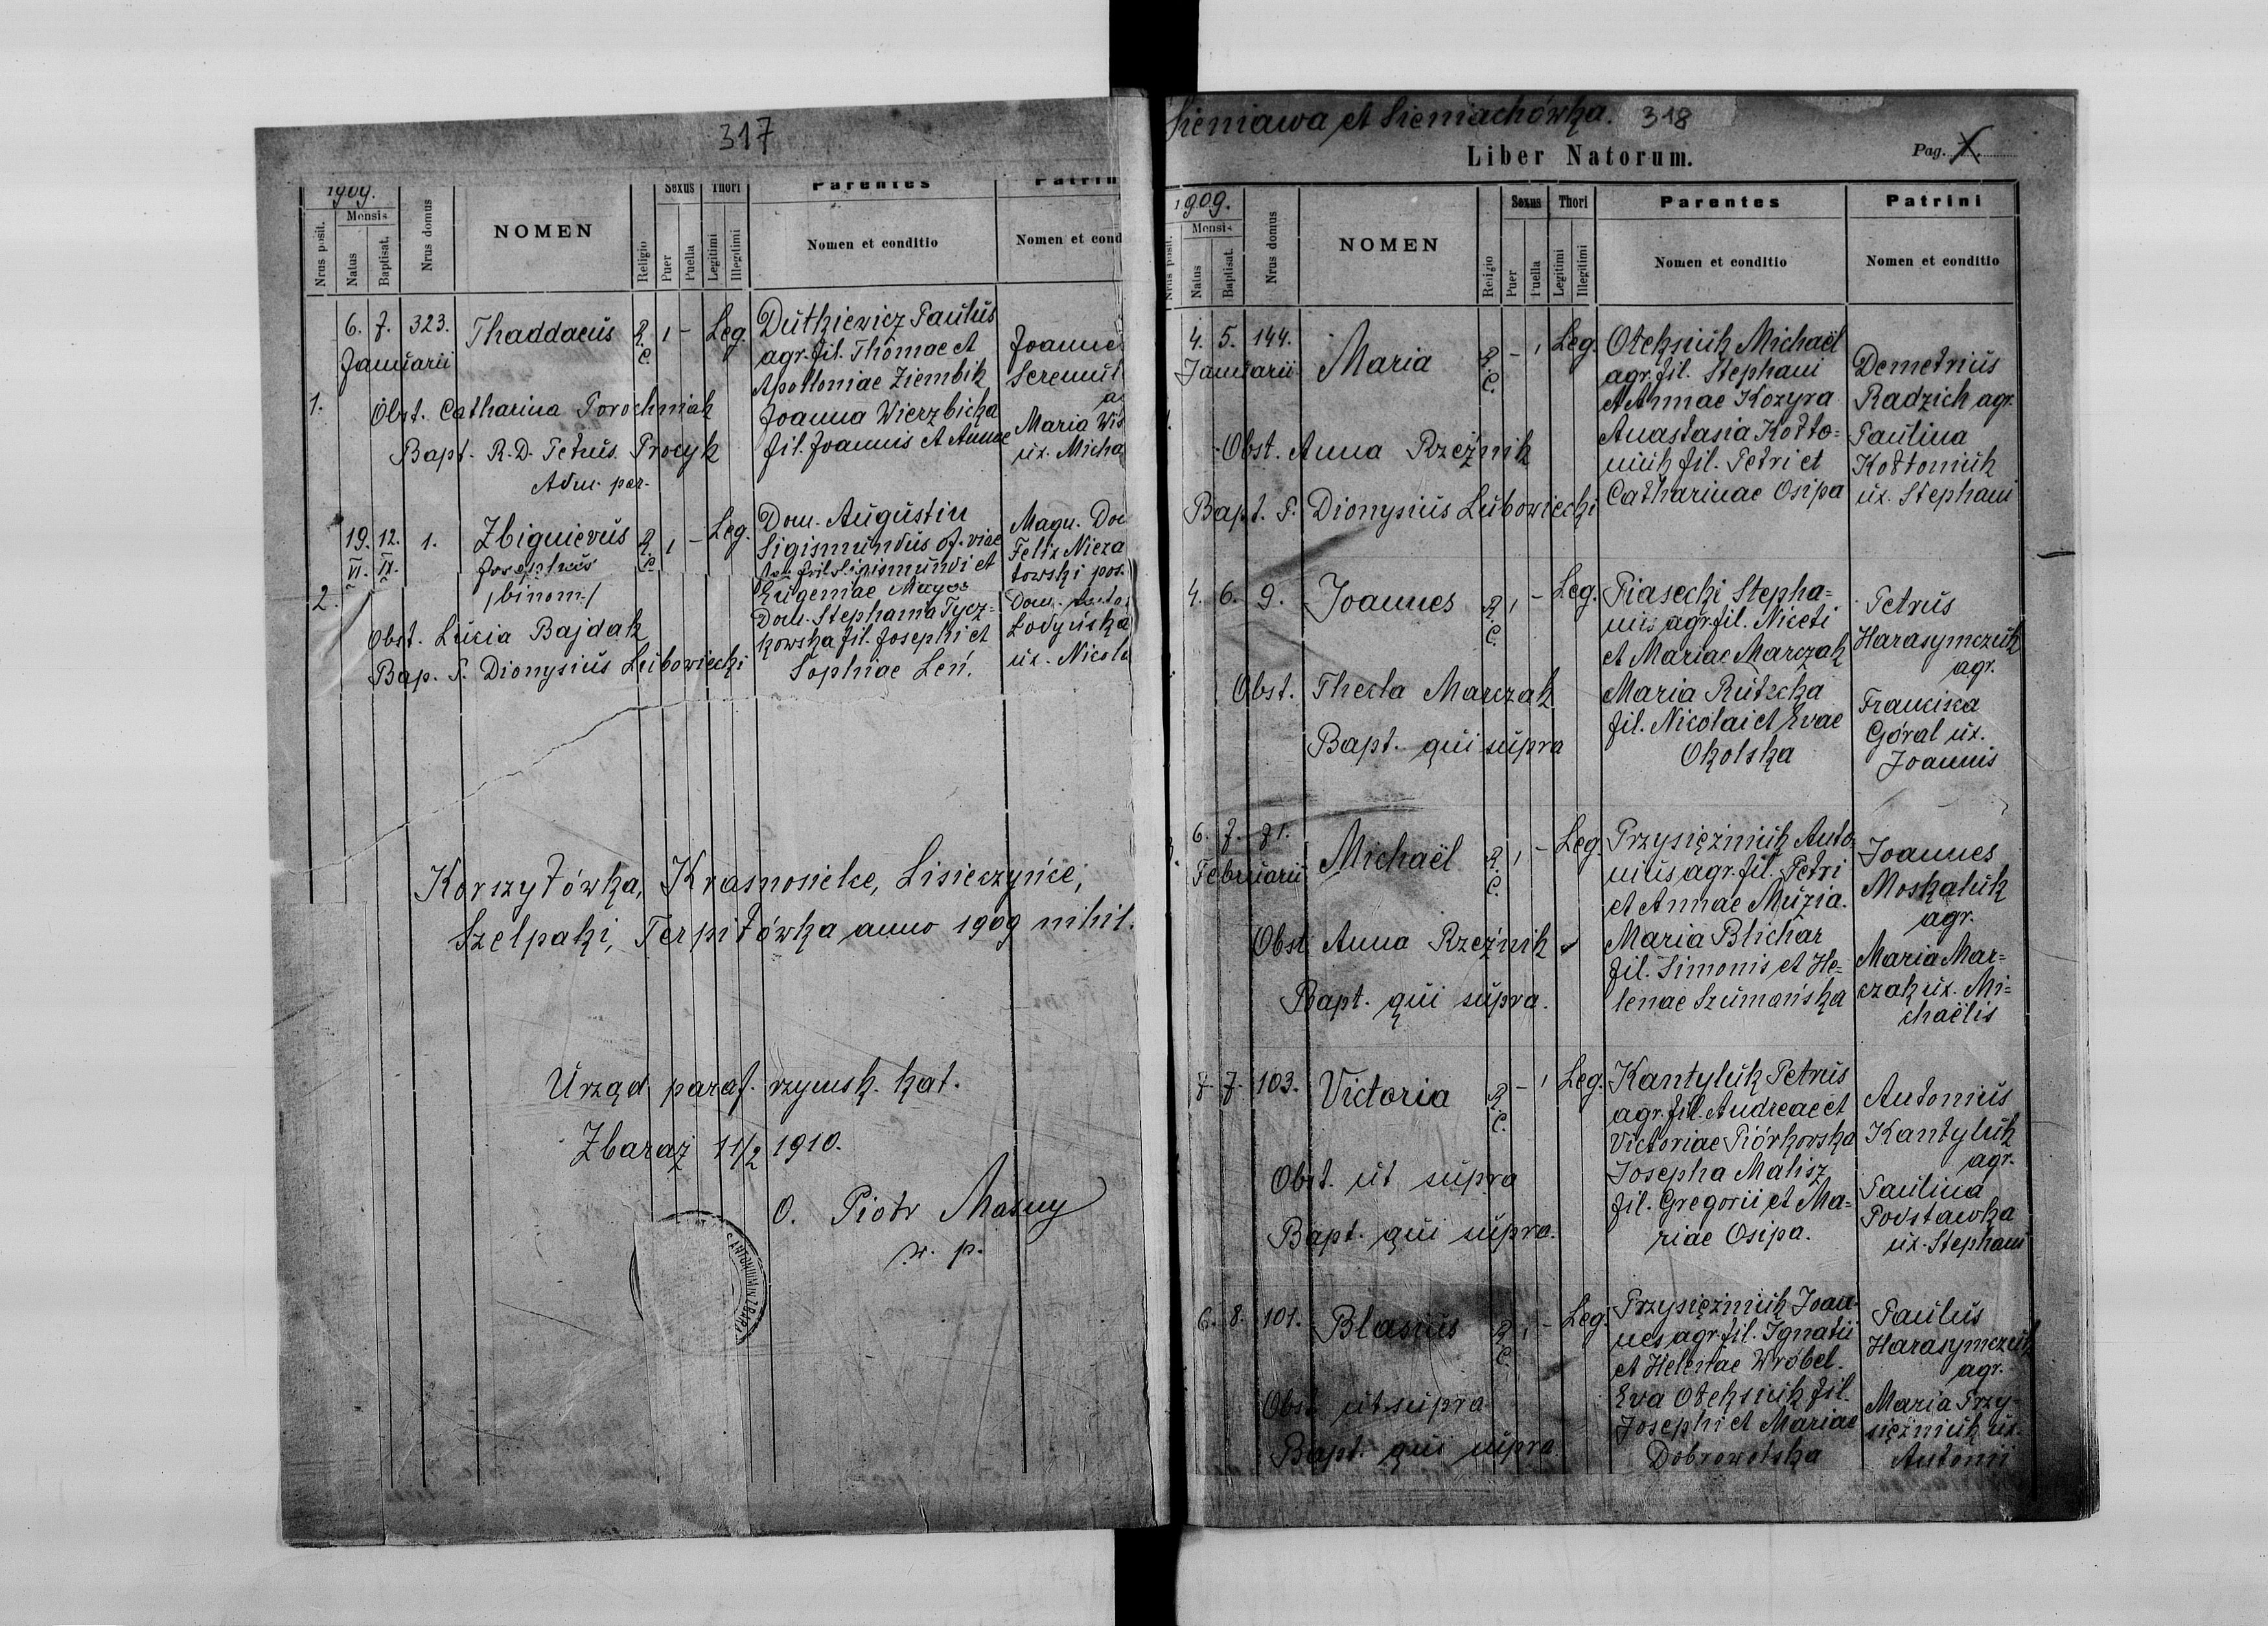 317
1909.
Sexus Thori Parentes Patrin
Nrus posit. Mensis Natus Baptisat. Nrus domus NOMEN Religio Puer Puella Legitimi Illegitimi Nomen et conditio Nomen et cond
6. 7. 323. Thaddaeus R. C. 1 - Leg. Dutkiewicz Paulus
Januarii agr. fil. Thomae et Joannes
Apolloniae Ziembik
1. Obst. Catharina Porochniak Joanna Wierzbicka Maria
Bapt. R. D. Petrus Procyk fil. Joannis et Annae ux. Micha
Adm. par.
19. 12. 1. Zbignievus R. C. 1 - Leg. Dom. Augustin Magn.
VI. IX. Josephus Sigismundus of. viae Felix Nieza
2. /binom./ fil. Sigismundi et towski pos.
Eugeniae Dom.
Dom. Stephania Tycz=
Obst. Lucia Bajdak kowska fil. Josephi et Łodyńska
Bap. P. Dionysius Lubowiecki Sophiae Leń. ux. Nicola
Korszyłówka, Krasnosielce, Lisieczyńce,
Szelpaki, Terpiłówka anno 1909 nihil.
Urząd paraf. rzymsk. kat.
Zbaraż 11/2 1910.
O. Piotr Masny
w. p.
Sieniawa et Sieniachówka. 318
Liber Natorum. Pag.
1909.
Sexus Thori Parentes Patrini
Nrus posit. Mensis Natus Baptisat. Nrus domus NOMEN Religio Puer Puella Legitimi Illegitimi Nomen et conditio Nomen et conditio
4. 5. 144. Maria R. C. - 1 Leg. Ołeksiuk Michaël
Januarii agr. fil. Stephani Demetrius
et Annae Kozyra Radzich agr.
Anastasia Kołto= Paulina
Obst. Anna Rzeźnik niuk fil. Petri et Kołtoniuk
Bapt. P. Dionysius Lubowiecki Catharinae Osipa ux. Stephani
4. 6. 9. Joannes R. C. 1 - Leg. Piasecki Stepha= Petrus
nus agr. fil. Niceti Harasymczuk
et Mariae Marczak agr.
Obst. Thecla Marczak Maria Rutecka Francisca
fil. Nicolai et Evae Góral ux.
Bapt. qui supra Okolska Joannis
6. 7. 71. Michaël R. C. 1 - Leg. Przysiężniuk Anto= Joannes
Februarii nius agr. fil. Petri Moskaluk
et Annae Muzia. agr.
Obst. Anna Rzeźnik Maria Blichar Maria Mar=
fil. Simonis et He= czak ux. Mi=
Bapt. qui supra. lenae Szumańska chaëlis
7. 7. 103. Victoria R. C. - 1 Leg. Kantyluk Petrus
agr. fil. Andreae et Antonius
Victoriae Piórkowska Kantyluk
agr.
Obst. ut supra Josepha Malisz Paulina
fil. Gregorii et Ma= Podstawka
Bapt. qui supra. riae Osipa. ux. Stephani
6. 8. 101. Blasius R. C. 1 - Leg. Przysiężniuk Joan= Paulus
nes agr. fil. Ignatii Harasymczuk
et Helenae Wróbel. agr.
Obst. ut supra Eva Ołeksiuk fil. Maria Przy=
Josephi et Mariae siężniuk ux.
Bapt. qui supra Dobrowolska Antonii